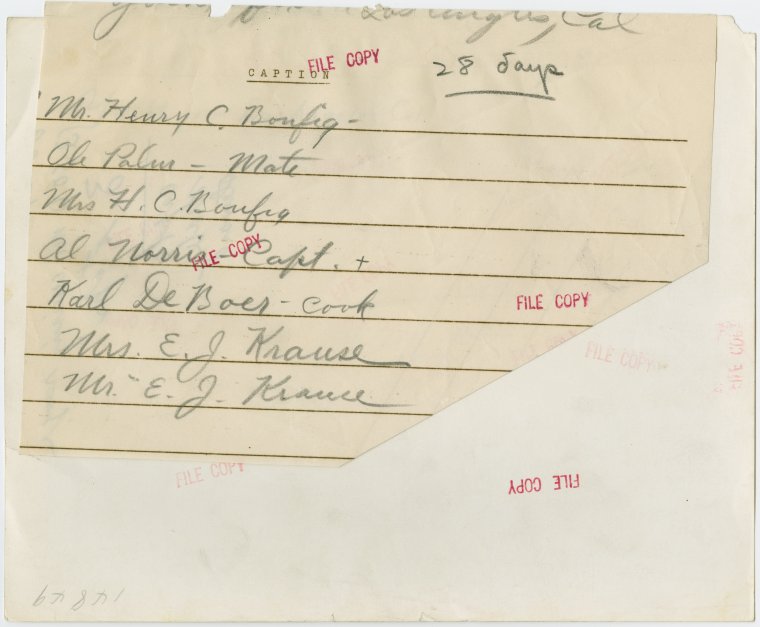 Los Angeles, Cal
FILE COPY
CAPTION
28 days
Mr. Henry C. Bonfig -
Ole Palm - Mate
Mrs H. C. Bonfig
Al Norris - Capt. +
FILE COPY
Karl De Boer - cook
FILE COPY
Mrs. E. J. Krause
FILE COPY
FILE COPY
Mr. E. J. Krause
FILE COPY
FILE COPY